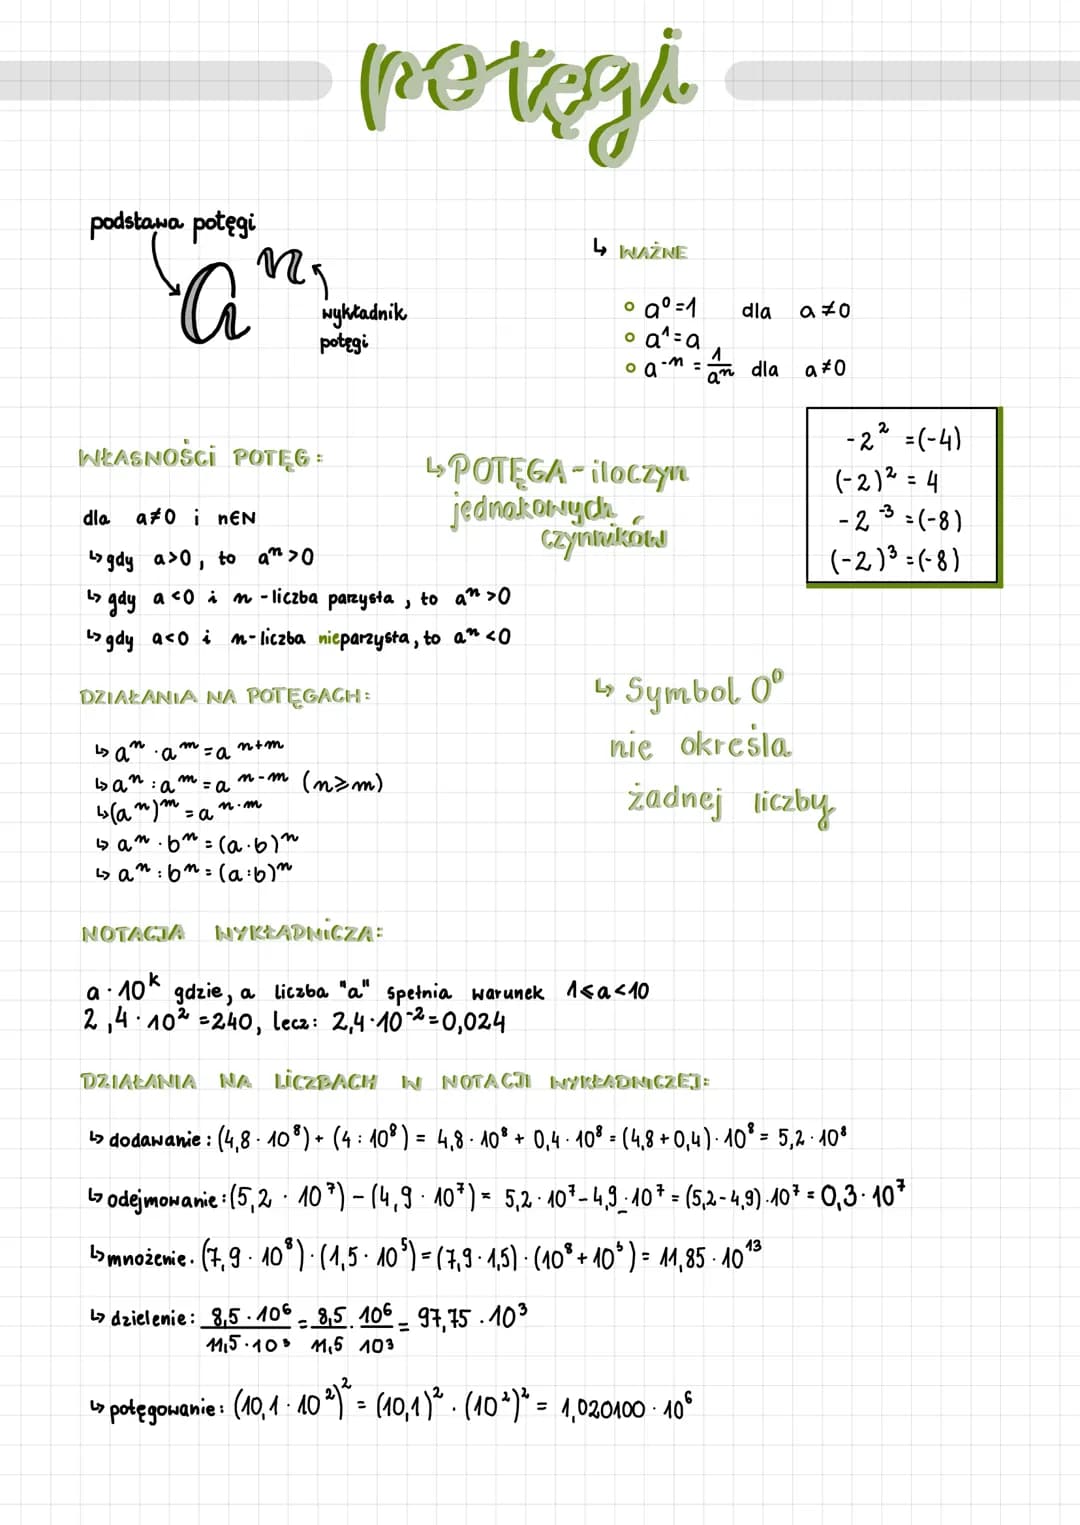 potęgi
podstawa potęgi
aⁿ
wykładnik
potęgi
↳ WAŻNE
∘ a⁰=1 dla a≠0
∘ a¹=a
∘ a⁻ⁿ = 1/aⁿ dla a≠0
-2² =(-4)
(-2)² = 4
-2⁻³ =(-8)
(-2)³ =(-8)
WŁASNOŚCI POTĘG:
↳POTĘGA - iloczyn
jednakowych
czynników
dla a≠0 i n∈N
↳gdy a>0, to aⁿ >0
↳ gdy a<0 i n - liczba parzysta, to aⁿ >0
↳gdy a<0 i n- liczba nieparzysta, to aⁿ <0
DZIAŁANIA NA POTĘGACH:
↳ aⁿ · aᵐ = a ⁿ⁺ᵐ
↳ aⁿ : aᵐ = a ⁿ⁻ᵐ (n⩾m)
↳(aⁿ)ᵐ = a ⁿ·ᵐ
↳ aⁿ · bⁿ = (a·b)ⁿ
↳ aⁿ : bⁿ = (a:b)ⁿ
↳ Symbol 0⁰
nie określa
żadnej liczby
NOTACJA WYKŁADNICZA:
a · 10ᵏ gdzie, a liczba "a" spełnia warunek 1⩽a<10
2,4 · 10² =240, lecz: 2,4·10⁻²=0,024
DZIAŁANIA NA LICZBACH W NOTACJI WYKŁADNICZEJ:
↳ dodawanie: (4,8 · 10⁸) + (4 : 10⁸) = 4,8 · 10⁸ + 0,4 · 10⁸ = (4,8+0,4) · 10⁸ = 5,2 · 10⁸
↳ odejmowanie: (5,2 · 10⁷) - (4,9 · 10⁷) = 5,2 · 10⁷ - 4,9 · 10⁷ = (5,2-4,9) · 10⁷ = 0,3 · 10⁷
↳mnożenie. (7,9 · 10⁸) · (1,5 · 10⁵) = (7,9 · 1,5) · (10⁸ + 10⁵) = 11,85 · 10¹³
↳ dzielenie: 8,5 · 10⁶ / 11,5 · 10³ = 8,5 / 11,5 · 10⁶ / 103 = 97,75 · 10³
↳ potęgowanie: (10,1 · 10²)² = (10,1)² · (10²)² = 1,020100 · 10⁶